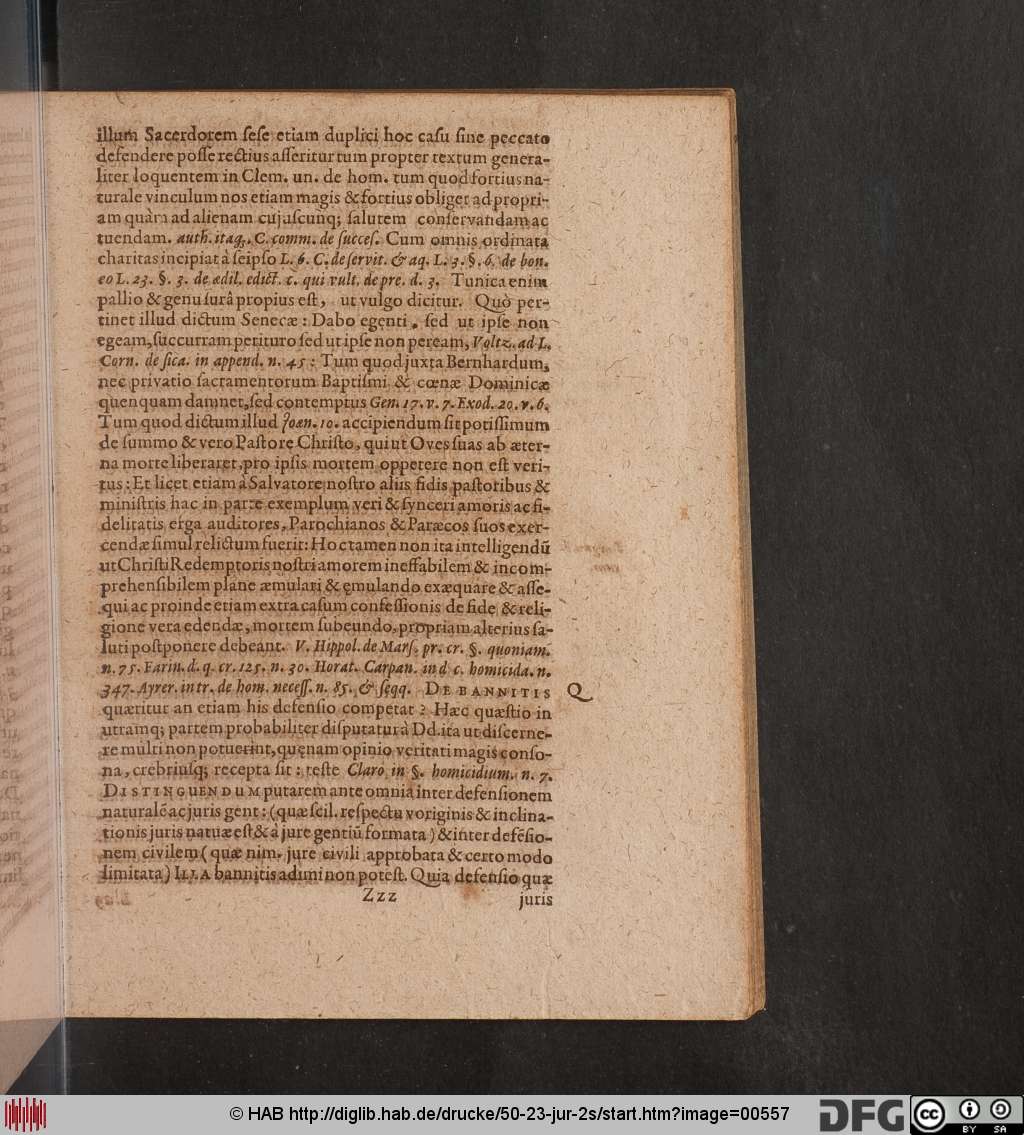 illum Sacerdorem ſeſe etiam duplici hoc caſu ſine peccato
defendere poſſe rectius aſſeritur tum propter textum genera-
liter loquentem in Clem. un. de hom. tum quod fortius na-
turale vinculum nos etiam magis & fortius obliget ad propri-
am quàm ad alienam cujuſcunq; ſalutem conſervandam ac
tuendam. auth. itaq;. C. comm. de ſucceſ. Cum omnis ordinata
charitas incipiat à ſeipſo L. 6. C. de ſervit. & aq. L. 3. §. 6. de bon.
eo L. 23. §. 3. de ædil. edict. c. qui vult. de pre. d. 3. Tunica enim
pallio & genu ſurâ propius eſt, ut vulgo dicitur. Quò per-
tinet illud dictum Senecæ: Dabo egenti, ſed ut ipſe non
egeam, ſuccurram perituro ſed ut ipſe non peream, Voltz. ad L.
Corn. de ſica. in append. n. 45: Tum quod juxta Bernhardum,
nec privatio ſacramentorum Baptiſmi & cœnæ Dominicæ
quenquam damnet, ſed contemptus Gen. 17. v. 7. Exod. 20. v. 6.
Tum quod dictum illud Joan. 10. accipiendum ſit potiſſimum
de ſummo & vero Paſtore Chriſto, qui ut Oves ſuas ab æter-
na morte liberaret, pro ipſis mortem oppetere non eſt veri-
tus: Et licet etiam à Salvatore noſtro aliis fidis paſtoribus &
miniſtris hac in parte exemplum veri & ſynceri amoris ac fi-
delitatis erga auditores, Parochianos & Paræcos ſuos exer-
cendæ ſimul relictum fuerit: Hoc tamen non ita intelligendū
ut Chriſti Redemptoris noſtri amorem ineffabilem & incom-
prehenſibilem planè æmulari & ęmulando exæquare & aſſe-
qui ac proinde etiam extra caſum confeſſionis de fide & reli-
gione vera edendæ, mortem ſubeundo, propriam alterius ſa-
luti poſtponere debeant. V. Hippol. de Marſ. pr. cr. §. quoniam.
n. 75. Farin. d. q. cr. 125. n. 30. Horat. Carpan. in d c. homicida. n.
347. Ayrer. in tr. de hom. neceſſ. n. 85. & ſeqq. DE BANNITIS Q
quæritur an etiam his defenſio competat? Hæc quæſtio in
utramq; partem probabiliter diſputatur à Dd. ita ut diſcerne-
re multi non potuerint, quęnam opinio veritati magis conſo-
na, crebriuſq; recepta ſit: teſte Claro in §. homicidium. n. 7.
DISTINGUENDUM putarem ante omnia inter defenſionem
naturalē ac juris gent: (quæ ſcil. reſpectu voriginis & inclina-
tionis juris natuæ eſt & à jure gentiū formata) & inter defēſio-
nem civilem (quæ nim. jure civili approbata & certo modo
limitata) ILLA bannitis adimi non poteſt. Quia defenſio quæ
Zzz juris
© HAB http://diglib.hab.de/drucke/50-23-jur-2s/start.htm?image=00557
DFG
cc BY SA